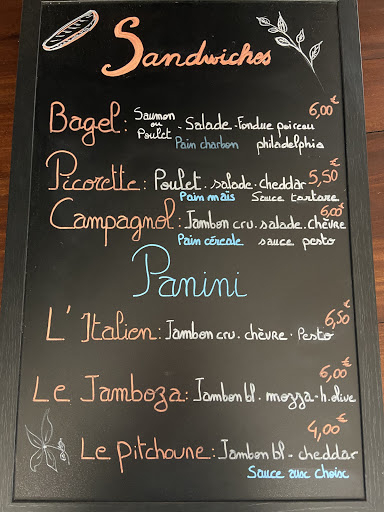 Sandwiches
Bagel : Saumon ou Poulet . Salade . Fondue poireau 6,00€
Pain charbon philadelphia
Picorette : Poulet . salade . cheddar 5,50€
Pain maïs Sauce tartare
Campagnol : Jambon cru . salade . chèvre 6,00€
Pain céréale sauce pesto
Panini
L'Italien : Jambon cru . chèvre . Pesto 6,50€
Le Jamboza : Jambon bl . mozza - h. olive 6,00€
Le pitchoune : Jambon bl - cheddar 4,00€
Sauce aux choix